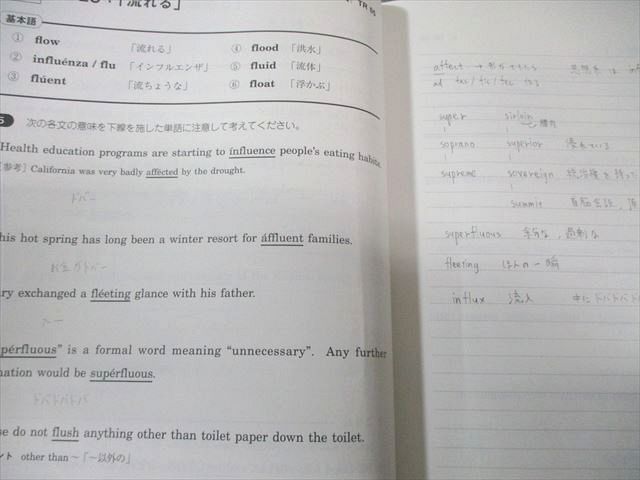 「流れる」
TR 65
基本語
① flow 「流れる」
② influénza / flu 「インフルエンザ」
③ flúent 「流ちょうな」
④ flood 「洪水」
⑤ fluid 「流体」
⑥ float 「浮かぶ」
次の各文の意味を下線を施した単語に注意して考えてください。
Health education programs are starting to ínfluence people's eating habits.
[参考] California was very badly affected by the drought.
ドバー
his hot spring has long been a winter resort for áffluent families.
お金がドバー
ry exchanged a fléeting glance with his father.
pérfluous” is a formal word meaning “unnecessary”. Any further
mation would be supérfluous.
ドバドバドバ
se do not flush anything other than toilet paper down the toilet.
ント other than ~「~以外の」
affect →
ad fac / fic / fec
super sirloin
soprano superior 優れている
supreme sovereign
summit
superfluous 余分な, 過剰な
fleering ほんの一瞬
influx 流入 中にドバドバド